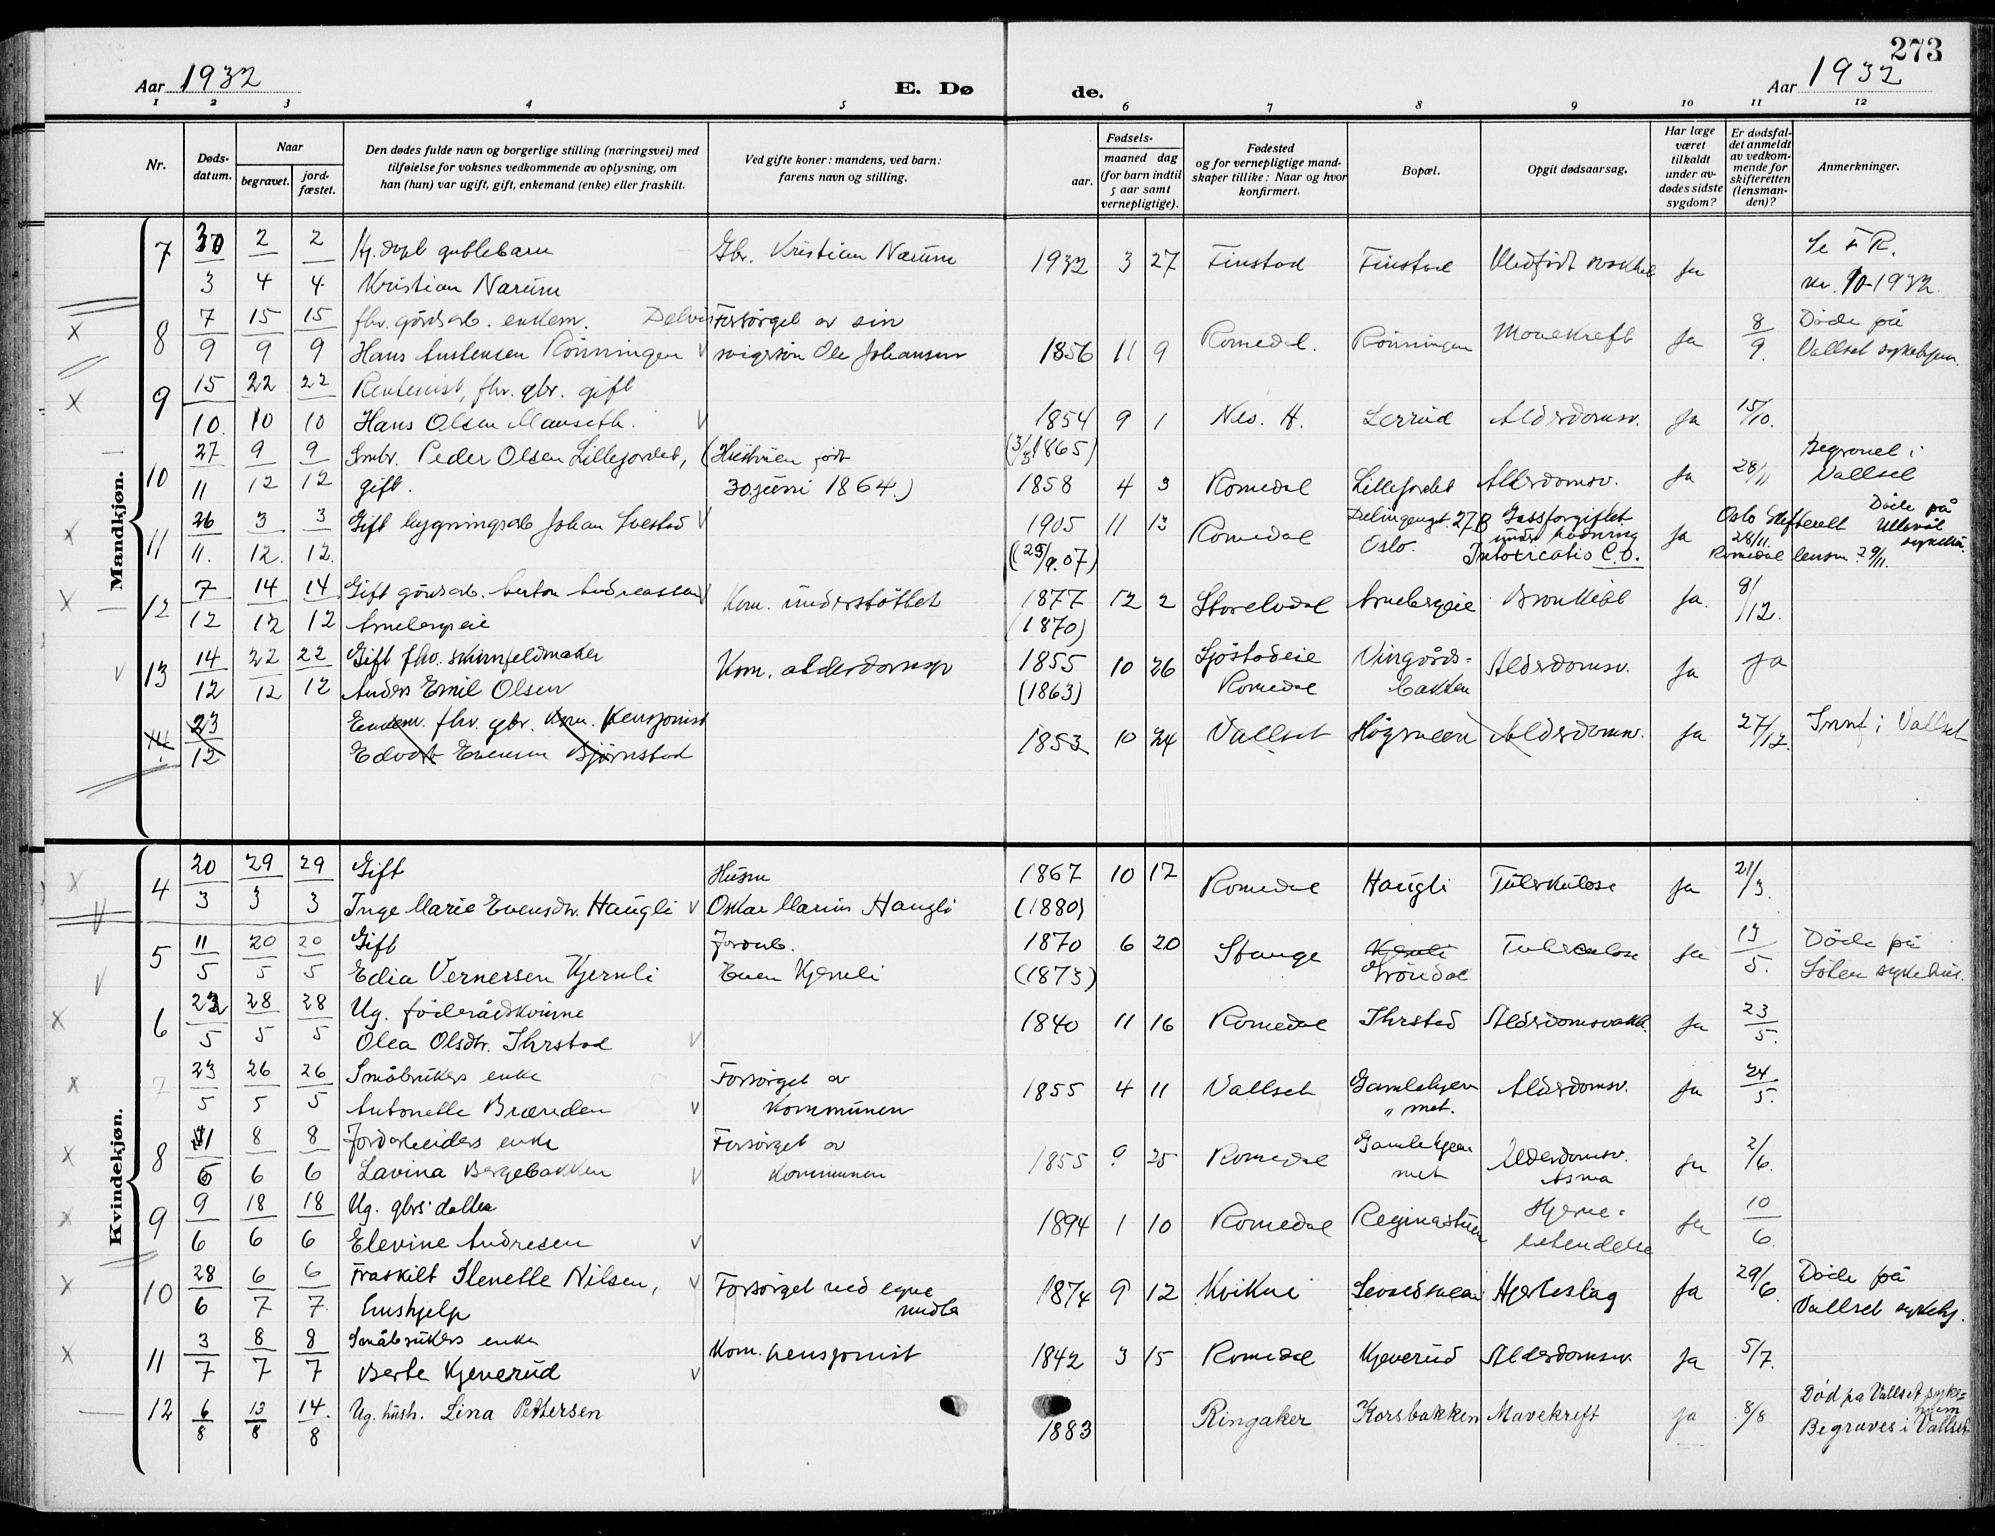 273
Aar 1932
E. Dø
de.
Aar 1932
1 2 3 4 5 6 7 8 9 10 11 12
Nr.
Døds-
datum.
Naar
begravet.
jord-
fæstet.
Den dødes fulde navn og borgerlige stilling (næringsvei) med
tilføielse for voksnes vedkommende av oplysning, om
han (hun) var ugift, gift, enkemand (enke) eller fraskilt.
Ved gifte koner: mandens, ved barn:
farens navn og stilling.
Fødsels-
aar.
maaned dag
(for barn indtil
5 aar samt
vernepligtige).
Fødested
og for vernepligtige mand-
skaper tillike: Naar og hvor
konfirmert.
Bopæl.
Opgit dødsaarsag.
Har læge
været
tilkaldt
under av-
dødes sidste
sygdom?
Er dødsfal-
det anmeldt
av vedkom-
mende for
skifteretten
(lensman-
den)?
Anmerkninger.
Mandkjøn.
7 30/3 2/4 2/4 Hj.døpt guttebarn Gbr. Kristian Narum 1932 3 27 Finstad Finstad Medfødt svakhet Ja Se F R.
Kristian Narum nr. 10-1932.
8 7/9 15/9 15/9 fhv. gårdsarb. enkem. Delvis Forsørget av sin Romedal. Rønningen Mavekreft Ja 8/9. Døde på
Hans Austensen Rønningen svigersøn Ole Johansen 1856 11 9 Vallset sykehjem.
9 15/10. 22/10 22/10 Rentenist, fhv. gbr. gift
Hans Olsen Manseth. 1854 9 1 Nes. H. Lerrud Alderdomsv. Ja 15/10.
10 27/11 9/12 9/12 Smbr. Peder Olsen Lillejordet, (Hustruen født (3/3 1865) Begravet i
gift. 30 juni 1864.) 1858 4 3 Romedal Lillejordet Alderdomsv. Ja 28/11 Vallset
11 26/11. 3/12. 3/12. Gift bygningsarb Johan Ivestad 1905 11 13 Romedal Delingengt. 27 B Gassforgiftet Ja Oslo Skifterett Døde på
(25/9.07) Oslo. under badning 28/11. Ullevål
Intoxicatio C.O. Romedal lensm. 29/11. sykehus.
12 7/12 14/12 14/12 Gift gårdsarb. Anton Andreassen Kom. understøttet 1877 12 2 Storelvdal Arnebergeie Bronkitt Ja. 9/12.
Arnebergeie (1870)
13 14/12 22/12 22/12 Gift fhv. skinnfeldmaker Kom. alderdomsp 1855 10 26 Sjøstadeie Vingårds- Alderdomsv. Ja Ja
Anders Emil Olsen (1863) Romedal bakken
14. 23/12 Enkem. fhv. gbr. Kom. Pensjonist 1853 10 24 Vallset Alderdomsv. Ja 27/12. Innf i Vallset
Edvart Evensen Bjørnstad
Kvindekjøn.
4 20/3 29/3 29/3 Gift Husm 1867 10 17 Romedal Haugli Tuberkulose Ja 21/3.
Inge Marie Evensdtr. Haugli Oskar Marius Haugli (1880)
5 11/5 20/5 20/5 Gift Jordarb. 1870 6 20 Stange Kjernli Tuberkulose Ja 13/5. Døde på
Edia Vernersen Kjernli Even Kjernli (1873) Grøndal Sølen sykehus.
6 22/5 28/5 28/5 Ug. føderådskvinne 1840 11 16 Romedal Ihrstad Alderdomsvakh. Ja 23/5.
Olea Olsdtr. Ihrstad
7 23/5 26/5 26/5 Småbrukers enke Forsørget av 1855 4 11 Vallset Gamlehjem Alderdomsv. Ja 24/5.
Antonette Brænden Kommunen " met.
8 1/6 8/6 8/6 Jordarbeiders enke Forsørget av 1855 9 25 Romedal Gamlehjem Alderdomsv. Ja 2/6.
Lavina Bergebakken Kommunen met Asma
9 9/6 18/6 18/6 Ug. gbrs datter 1894 1 10 Romedal Reginastuen Hjerne- Ja 10/6.
Elevine Andresen betendelse
10 28/6 6/7 6/7. Fraskilt Ilenette Nilsen, Forsørget ved egne 1874 9 12 Kvikne Hjerteslag Ja 29/6. Døde på
hushjelp midler Vallset sykehj.
11 3/7 8/7 8/7 Småbrukers enke Kom. pensjonist 1842 3 15 Romedal Kjeverud Alderdomsv. Ja 5/7.
Berte Kjeverud
12 6/8 13/8 14./8 Ug. hush. Lina Pettersen 1883 Ringaker Korsbakken Mavekreft ja 8/8 Død på Vallset syke-
hjem
Begraves i Vallset